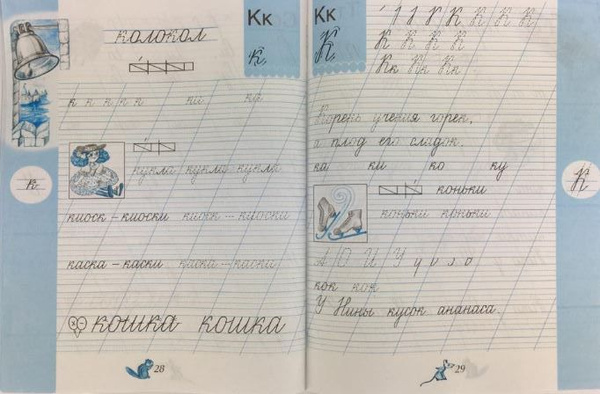 колокол
Кк
к
к к к к к ки ку
кукла кукла кукла
киоск – киоски киоск – киоски
каска – каски каска – каски
кошка кошка
28
к
Кк
К
К К К К
К К К К
Кк Кк Кк
Корень учения горек,
а плод его сладок.
ка ки ко ку
коньки
коньки коньки
А О И У у и л о
кок кок
У Нины кусок ананаса.
29
К